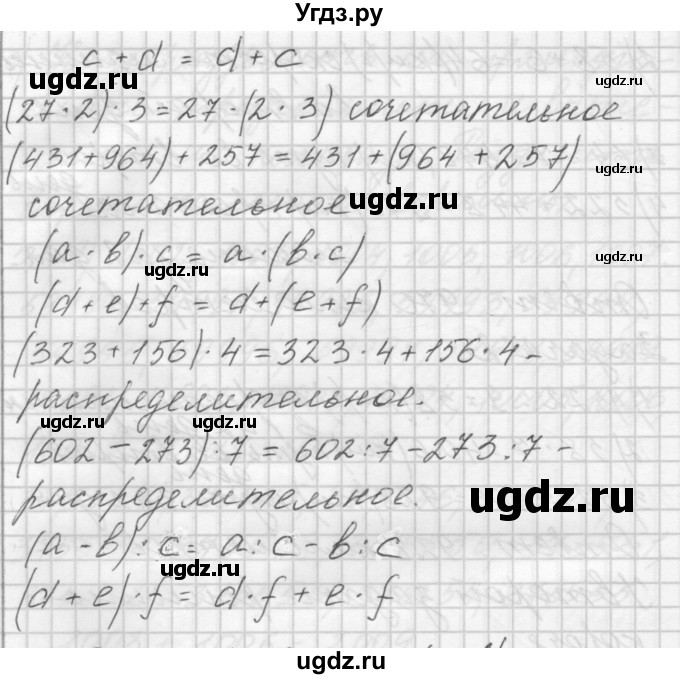 Угдз.ру
c + d = d + c
ugdz.ru
ugdz.ru
(27·2)·3=27·(2·3) сочетательное
(431+964)+257=431+(964+257)
ugdz.ru
сочетательное
ugdz.ru
(a·b)·c = a·(b·c)
ugdz.ru
ugdz.ru
(d+e)+f = d+(e+f)
(323+156)·4=323·4+156·4-
распределительное.
ugdz.ru
ugdz.ru
(602-273):7=602:7-273:7-
распределительное.
ugdz.ru
(a-b):c=a:c-b:c
ugdz.ru
(d+e)·f=d·f+e·f
ugdz.ru